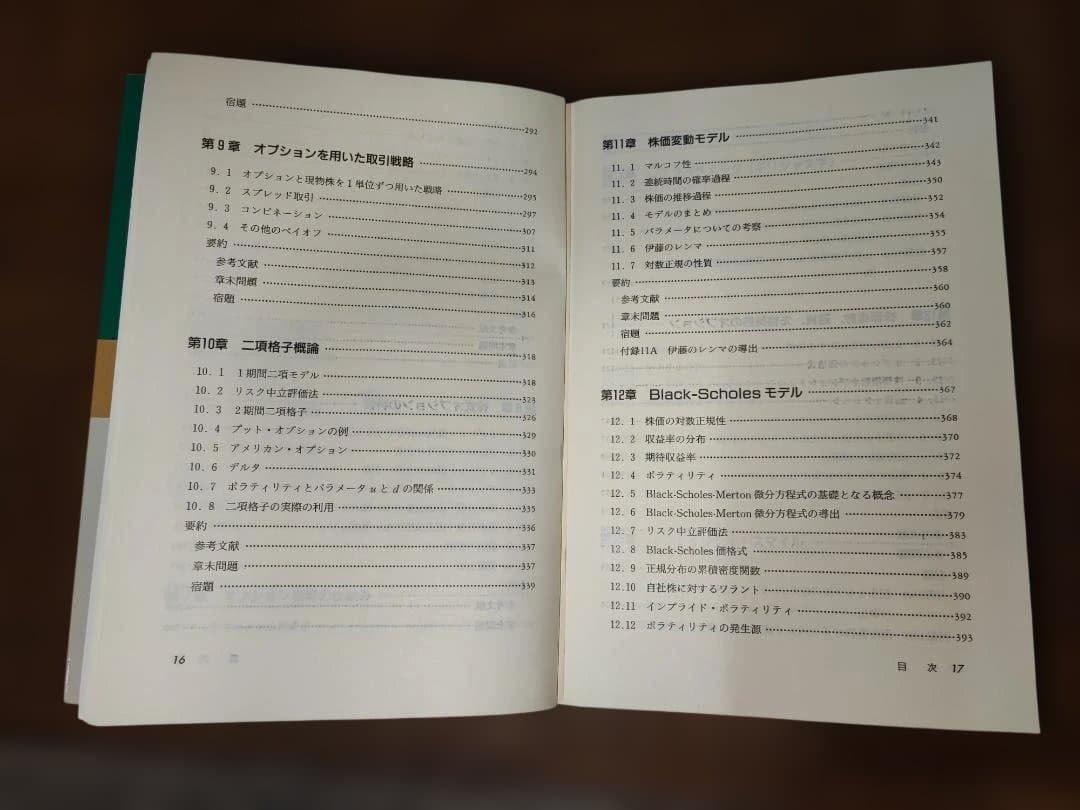 宿題 292
第9章 オプションを用いた取引戦略 294
9.1 オプションと現物株を1単位ずつ用いた戦略 295
9.2 スプレッド取引 297
9.3 コンビネーション 307
9.4 その他のペイオフ 311
要約 312
参考文献 313
章末問題 314
宿題 316
第10章 二項格子概論 318
10.1 1期間二項モデル 318
10.2 リスク中立評価法 323
10.3 2期間二項格子 326
10.4 プット・オプションの例 329
10.5 アメリカン・オプション 330
10.6 デルタ 331
10.7 ボラティリティとパラメータuとdの関係 333
10.8 二項格子の実際の利用 335
要約 336
参考文献 337
章末問題 337
宿題 339
16
第11章 株価変動モデル 341
11.1 マルコフ性 342
11.2 連続時間の確率過程 343
11.3 株価の推移過程 350
11.4 モデルのまとめ 352
11.5 パラメータについての考察 354
11.6 伊藤のレンマ 355
11.7 対数正規の性質 357
要約 358
参考文献 360
章末問題 360
宿題 362
付録11A 伊藤のレンマの導出 364
第12章 Black-Scholesモデル 367
12.1 株価の対数正規性 368
12.2 収益率の分布 370
12.3 期待収益率 372
12.4 ボラティリティ 374
12.5 Black-Scholes-Merton微分方程式の基礎となる概念 377
12.6 Black-Scholes-Merton微分方程式の導出 379
12.7 リスク中立評価法 383
12.8 Black-Scholes価格式 385
12.9 正規分布の累積密度関数 389
12.10 自社株に対するワラント 390
12.11 インプライド・ボラティリティ 392
12.12 ボラティリティの発生源 393
目次 17